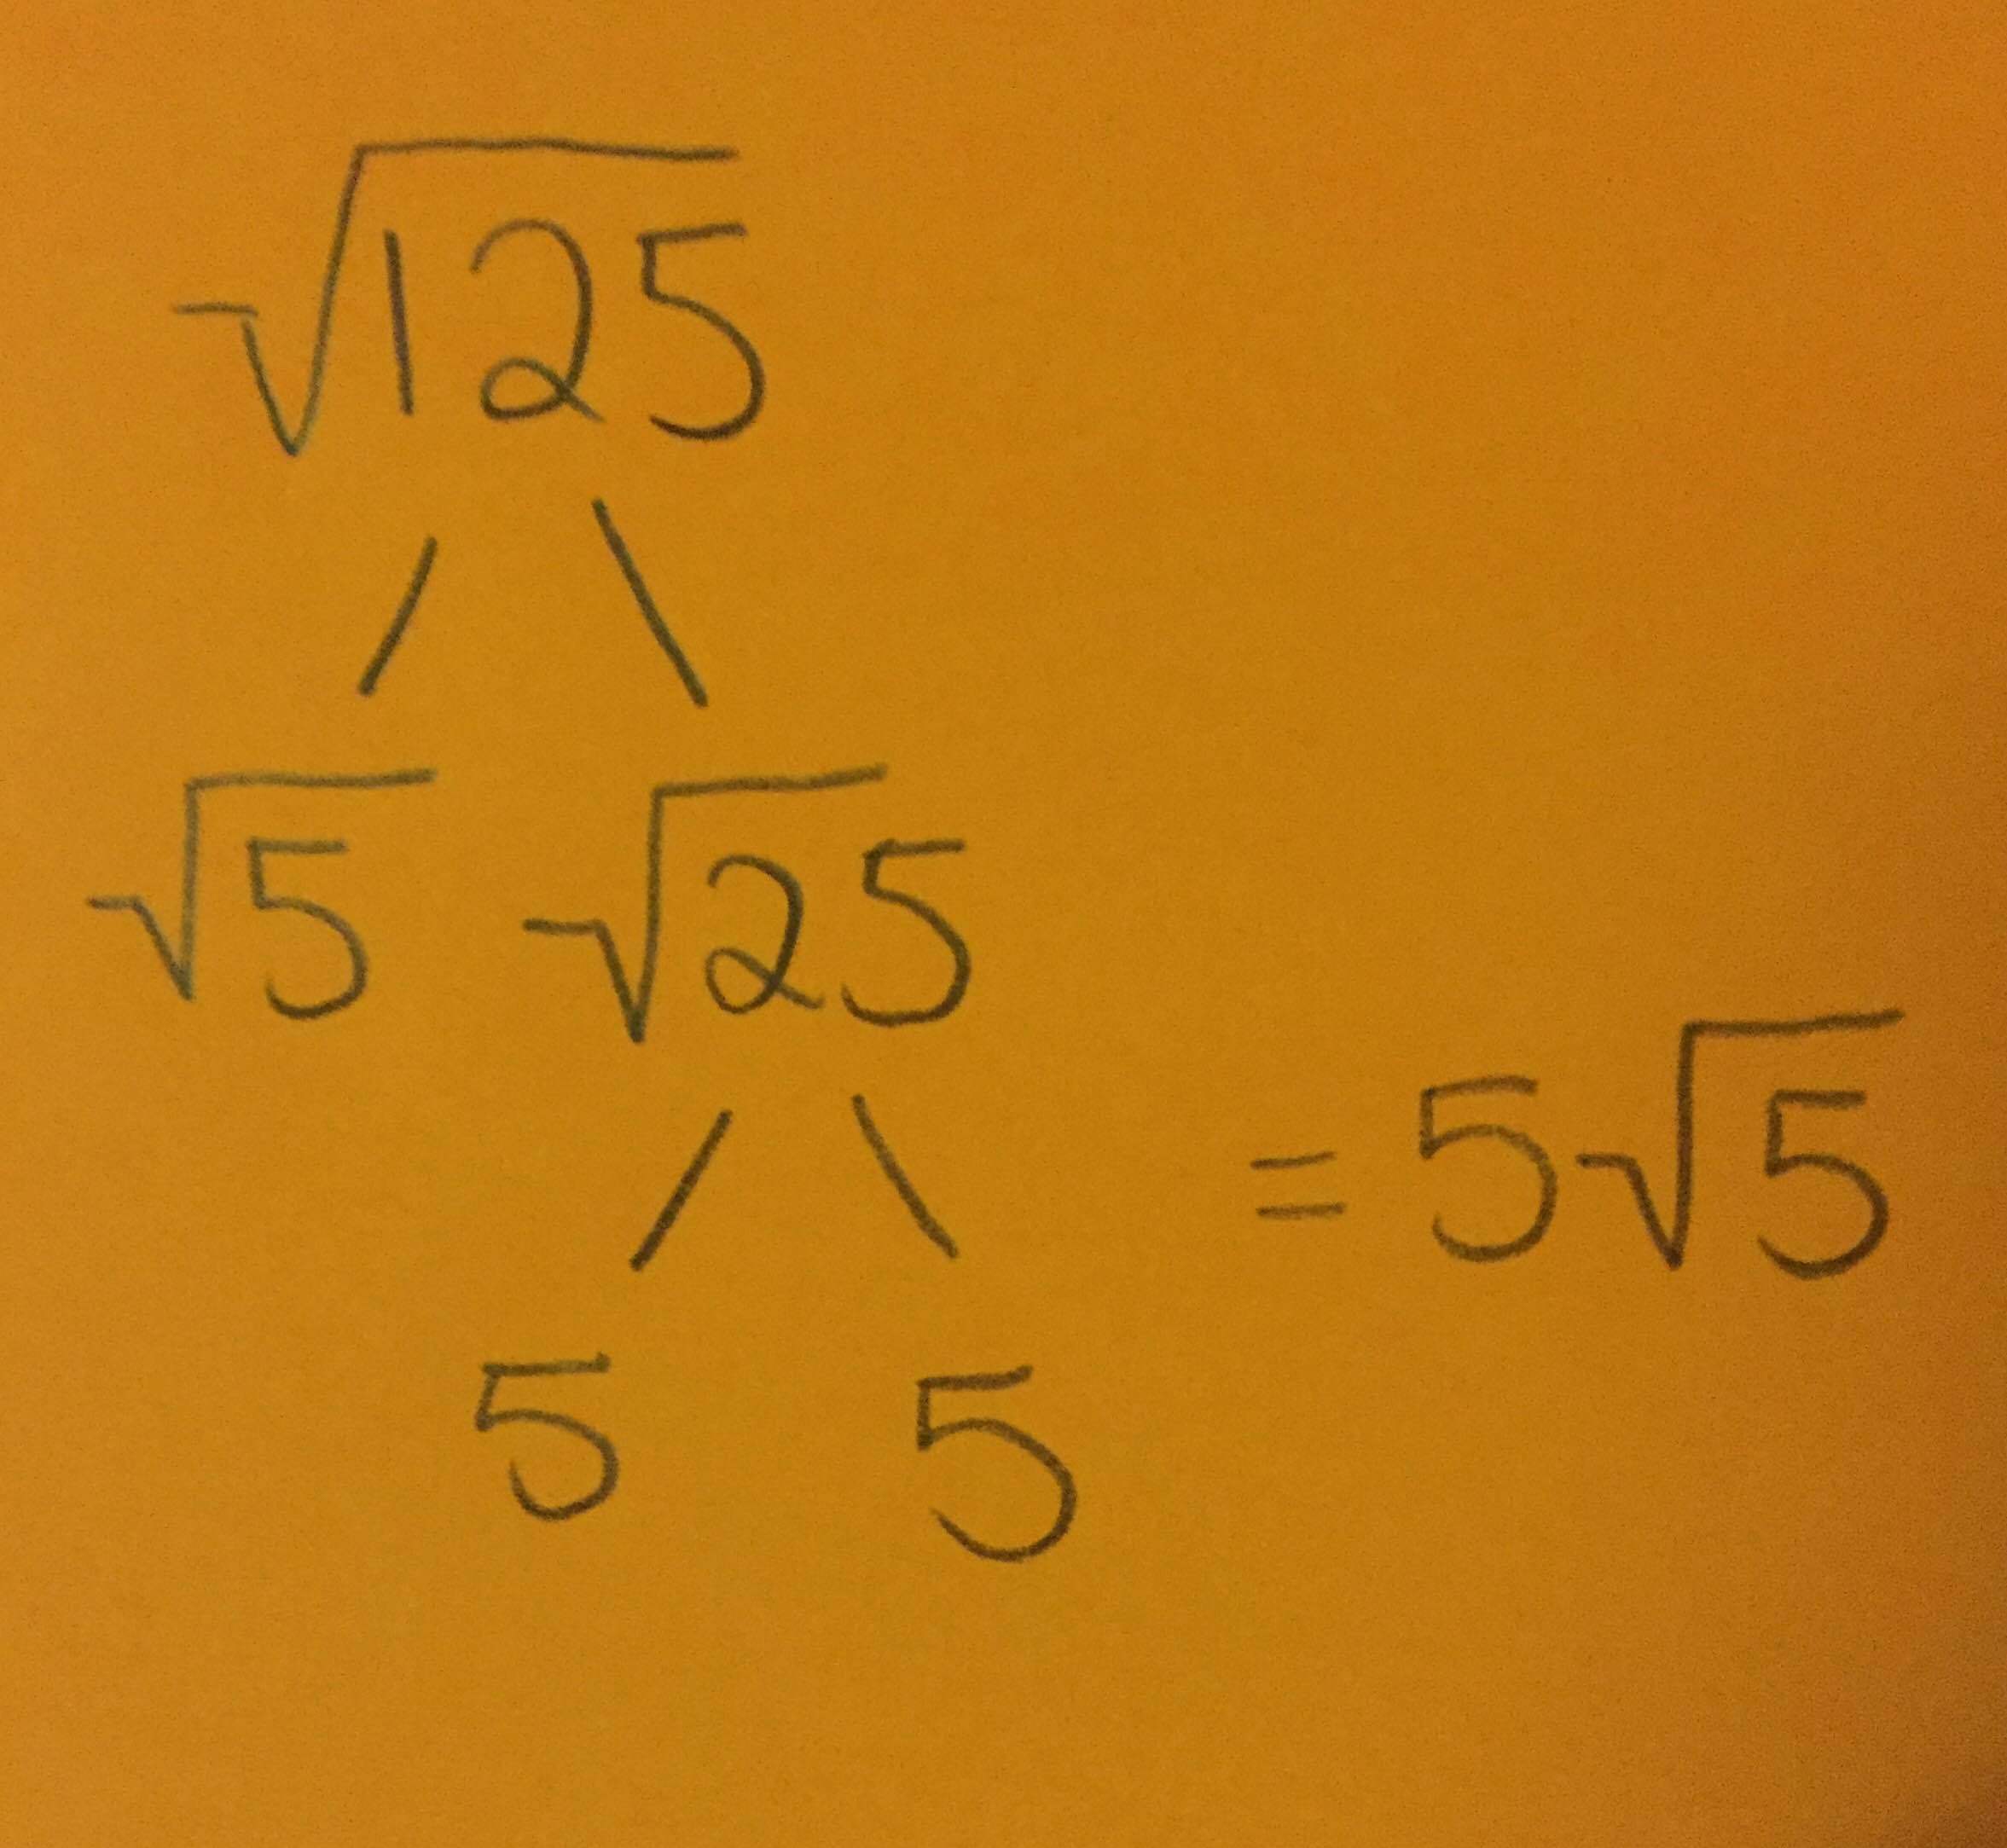 √125
√5 √25
= 5√5
5 5